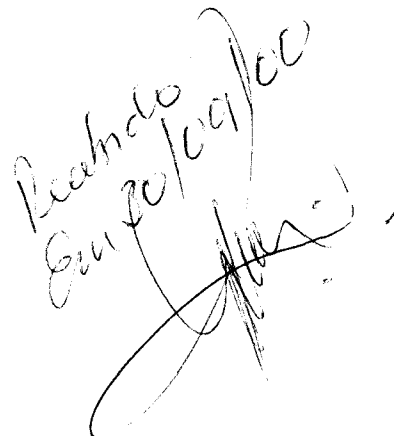 Recebido
Em 30/09/00